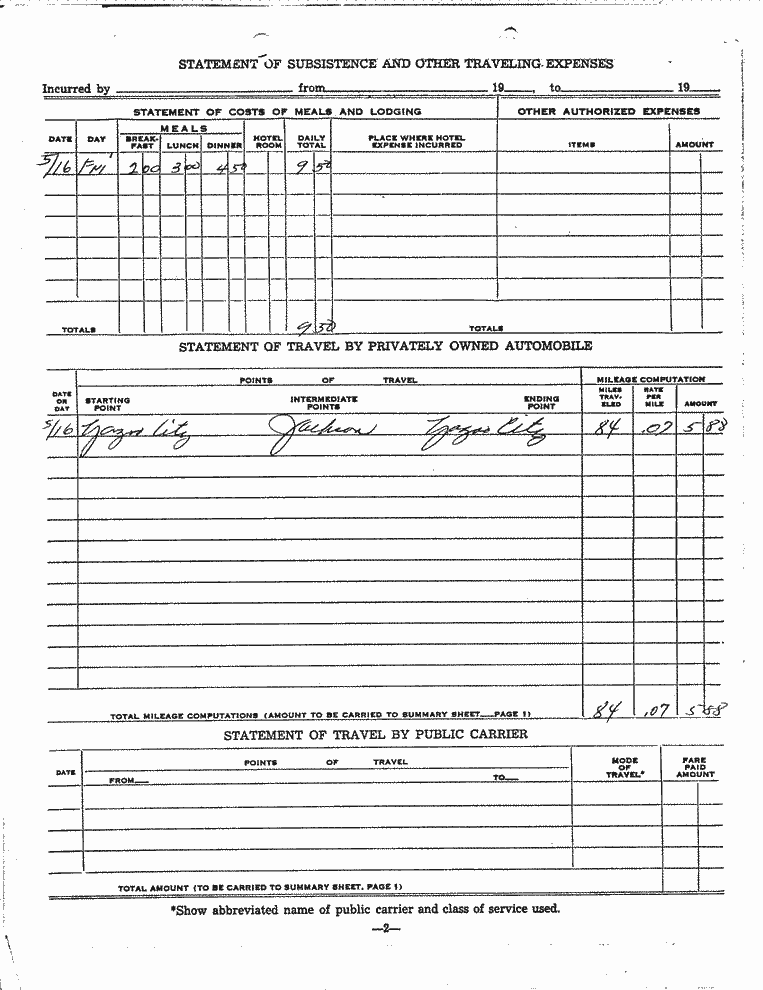 STATEMENT OF SUBSISTENCE AND OTHER TRAVELING EXPENSES
Incurred by from 19 , to 19
STATEMENT OF COSTS OF MEALS AND LODGING OTHER AUTHORIZED EXPENSES
DATE DAY MEALS BREAK-FAST LUNCH DINNER HOTEL ROOM DAILY TOTAL PLACE WHERE HOTEL EXPENSE INCURRED ITEMS AMOUNT
5/16 Fri 2 00 3 00 4 50 9 50
TOTALS 9 50 TOTALS
STATEMENT OF TRAVEL BY PRIVATELY OWNED AUTOMOBILE
POINTS OF TRAVEL MILEAGE COMPUTATION
DATE OR DAY STARTING POINT INTERMEDIATE POINTS ENDING POINT MILES TRAV-ELED RATE PER MILE AMOUNT
5/16 Yazoo City Jackson Yazoo City 84 .07 5 88
TOTAL MILEAGE COMPUTATIONS (AMOUNT TO BE CARRIED TO SUMMARY SHEET—PAGE 1) 84 .07 5 88
STATEMENT OF TRAVEL BY PUBLIC CARRIER
DATE POINTS OF TRAVEL MODE OF TRAVEL* FARE PAID AMOUNT
FROM— TO—
TOTAL AMOUNT (TO BE CARRIED TO SUMMARY SHEET, PAGE 1)
*Show abbreviated name of public carrier and class of service used.
—2—